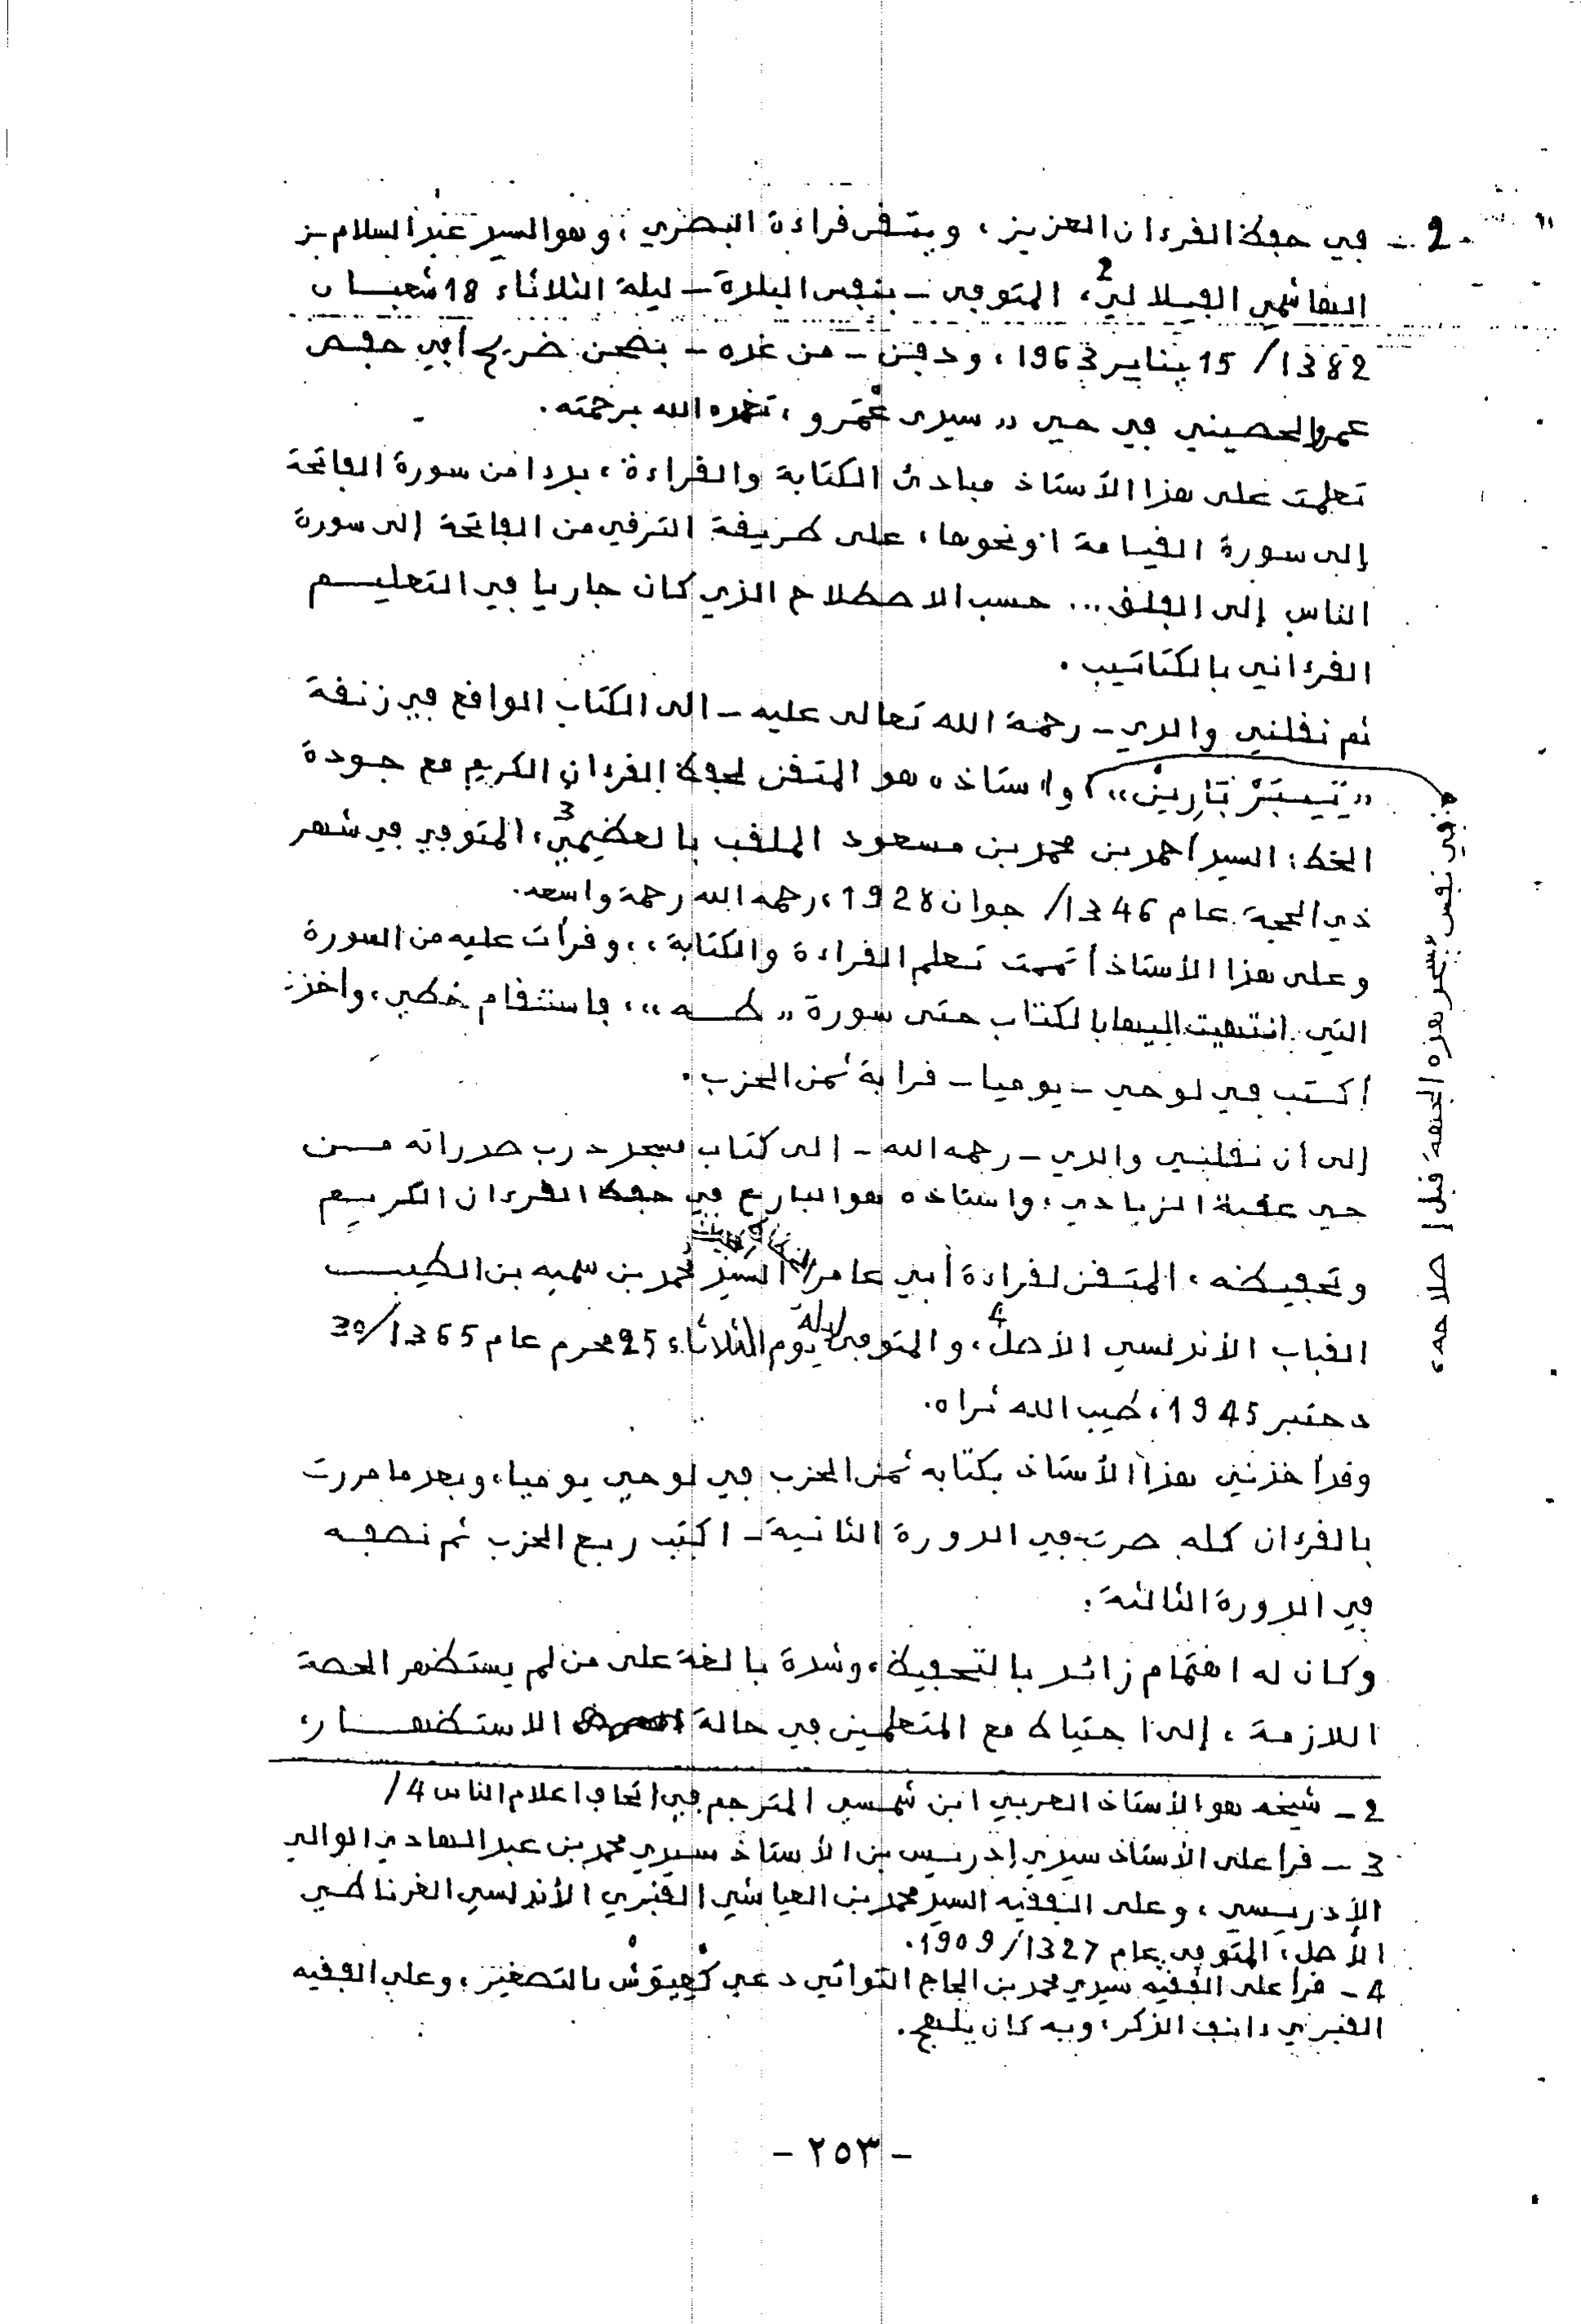 - 2 - في حفظ القرءان العزيز، ويتقن قراءة البصري، وهو السيد عبد السلام بن
الهاشمي الفيلالي2، المتوفى - بنفس البلدة - ليلة الثلاثاء 18 شعبان
1382/ 15 يناير 1963، ودفن - من غده - بصحن ضريح أبي حفص
عمر الحصيني في حي "سيدي عمرو، تغمده الله برحمته.
تعلمت على هذا الأستاذ مبادئ الكتابة والقراءة، بدءا من سورة الفاتحة
إلى سورة القيامة أو نحوها، على طريقة الترقي من الفاتحة إلى سورة
الناس إلى الفلق... حسب الاصطلاح الذي كان جاريا في التعليم
القرءاني بالكتاتيب.
ثم نقلني والدي - رحمة الله تعالى عليه - الى الكتاب الواقع في زنقة
"تيبربارين"، وأستاذه هو المتقن لحفظ القرءان الكريم مع جودة
الخط: السيد أحمد بن محمد بن مسعود الملقب بالعظيمي3، المتوفى في شهر
ذي الحجة عام 1346/ جوان 1928، رحمه الله رحمة واسعة.
وعلى هذا الأستاذ أتممت تعلم القراءة والكتابة، وقرأت عليه من السورة
التي انتهيت إليها بالكتاب حتى سورة "طه"، فاستقام خطي، وأخذت
أكتب في لوحي - يوميا - قرابة ثمن الحزب.
إلى أن نقلني والدي - رحمه الله - الى كتاب مسجد درب صدراته من
حي عقبة الزيادي، وأستاذه هو البارع في حفظ القرءان الكريم
وتحفيظه، المتقن لقراءة أبي عامر السيد محمد بن سميه بن الطيب
القباب الأندلسي الأصل4، والمتوفى ليلة يوم الثلاثاء 25 محرم عام 1365/30
دجنبر 1945، طيب الله ثراه.
وقد أخذني هذا الأستاذ بكتابة ثمن الحزب في لوحي يوميا، وبعد ما مررت
بالقرءان كله صرت في الدورة الثانية - اكتب ربع الحزب ثم نصفه
في الدورة الثالثة.
وكان له اهتمام زائد بالتحفيظ، وشدة بالغة على من لم يستظهر الحصة
اللازمة، إلى احتياط مع المتعلمين في حالة الاستظهار،
في نفس مسجد هذه الجهة قبل إصلاحه،
2 - شيخه هو الأستاذ العربي ابن شمسي المترجم في اتحاف اعلام الناس 4/
3 - قرأ على الأستاذ سيدي إدريس بن الأستاذ سيدي محمد بن عبد الهادي الوالي
الإدريسي، وعلى الفقيه السيد محمد بن العياشي القنبري الأندلسي الغرناطي
الأصل، المتوفى عام 1327/1909.
4 - قرأ على الفقيه سيدي محمد بن الحاج التواتي دعي بالتصغير، وعلى الفقيه
القنبري ءانف الذكر، وبه كان يلهج.
- ٢٥٣ -